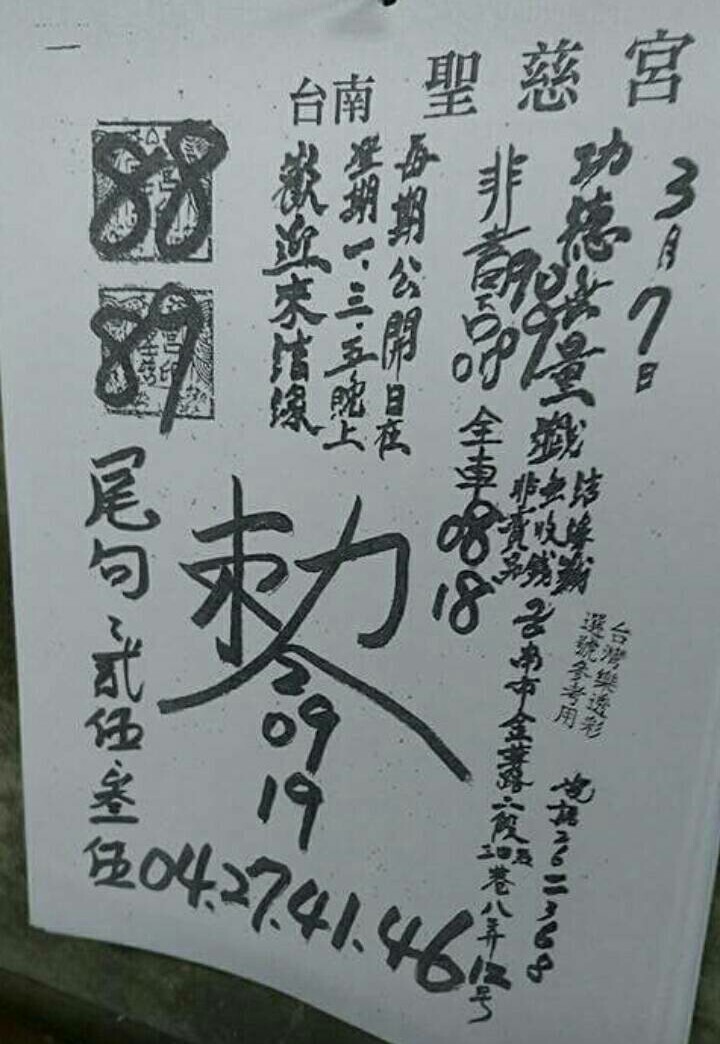 台南 聖慈宮
3月7日
功德無量
非
90
97
08
全車
08
18
結緣籤
無收錢
非賣品
台灣樂透彩
選號參考用
電話2622368
台南市金華路二段
巷八弄12号
每期公開日在
星期一、三、五晚上
歡迎來結緣
88
89
敕
2
09
19
尾句
貳伍叁伍
04.27.41.46